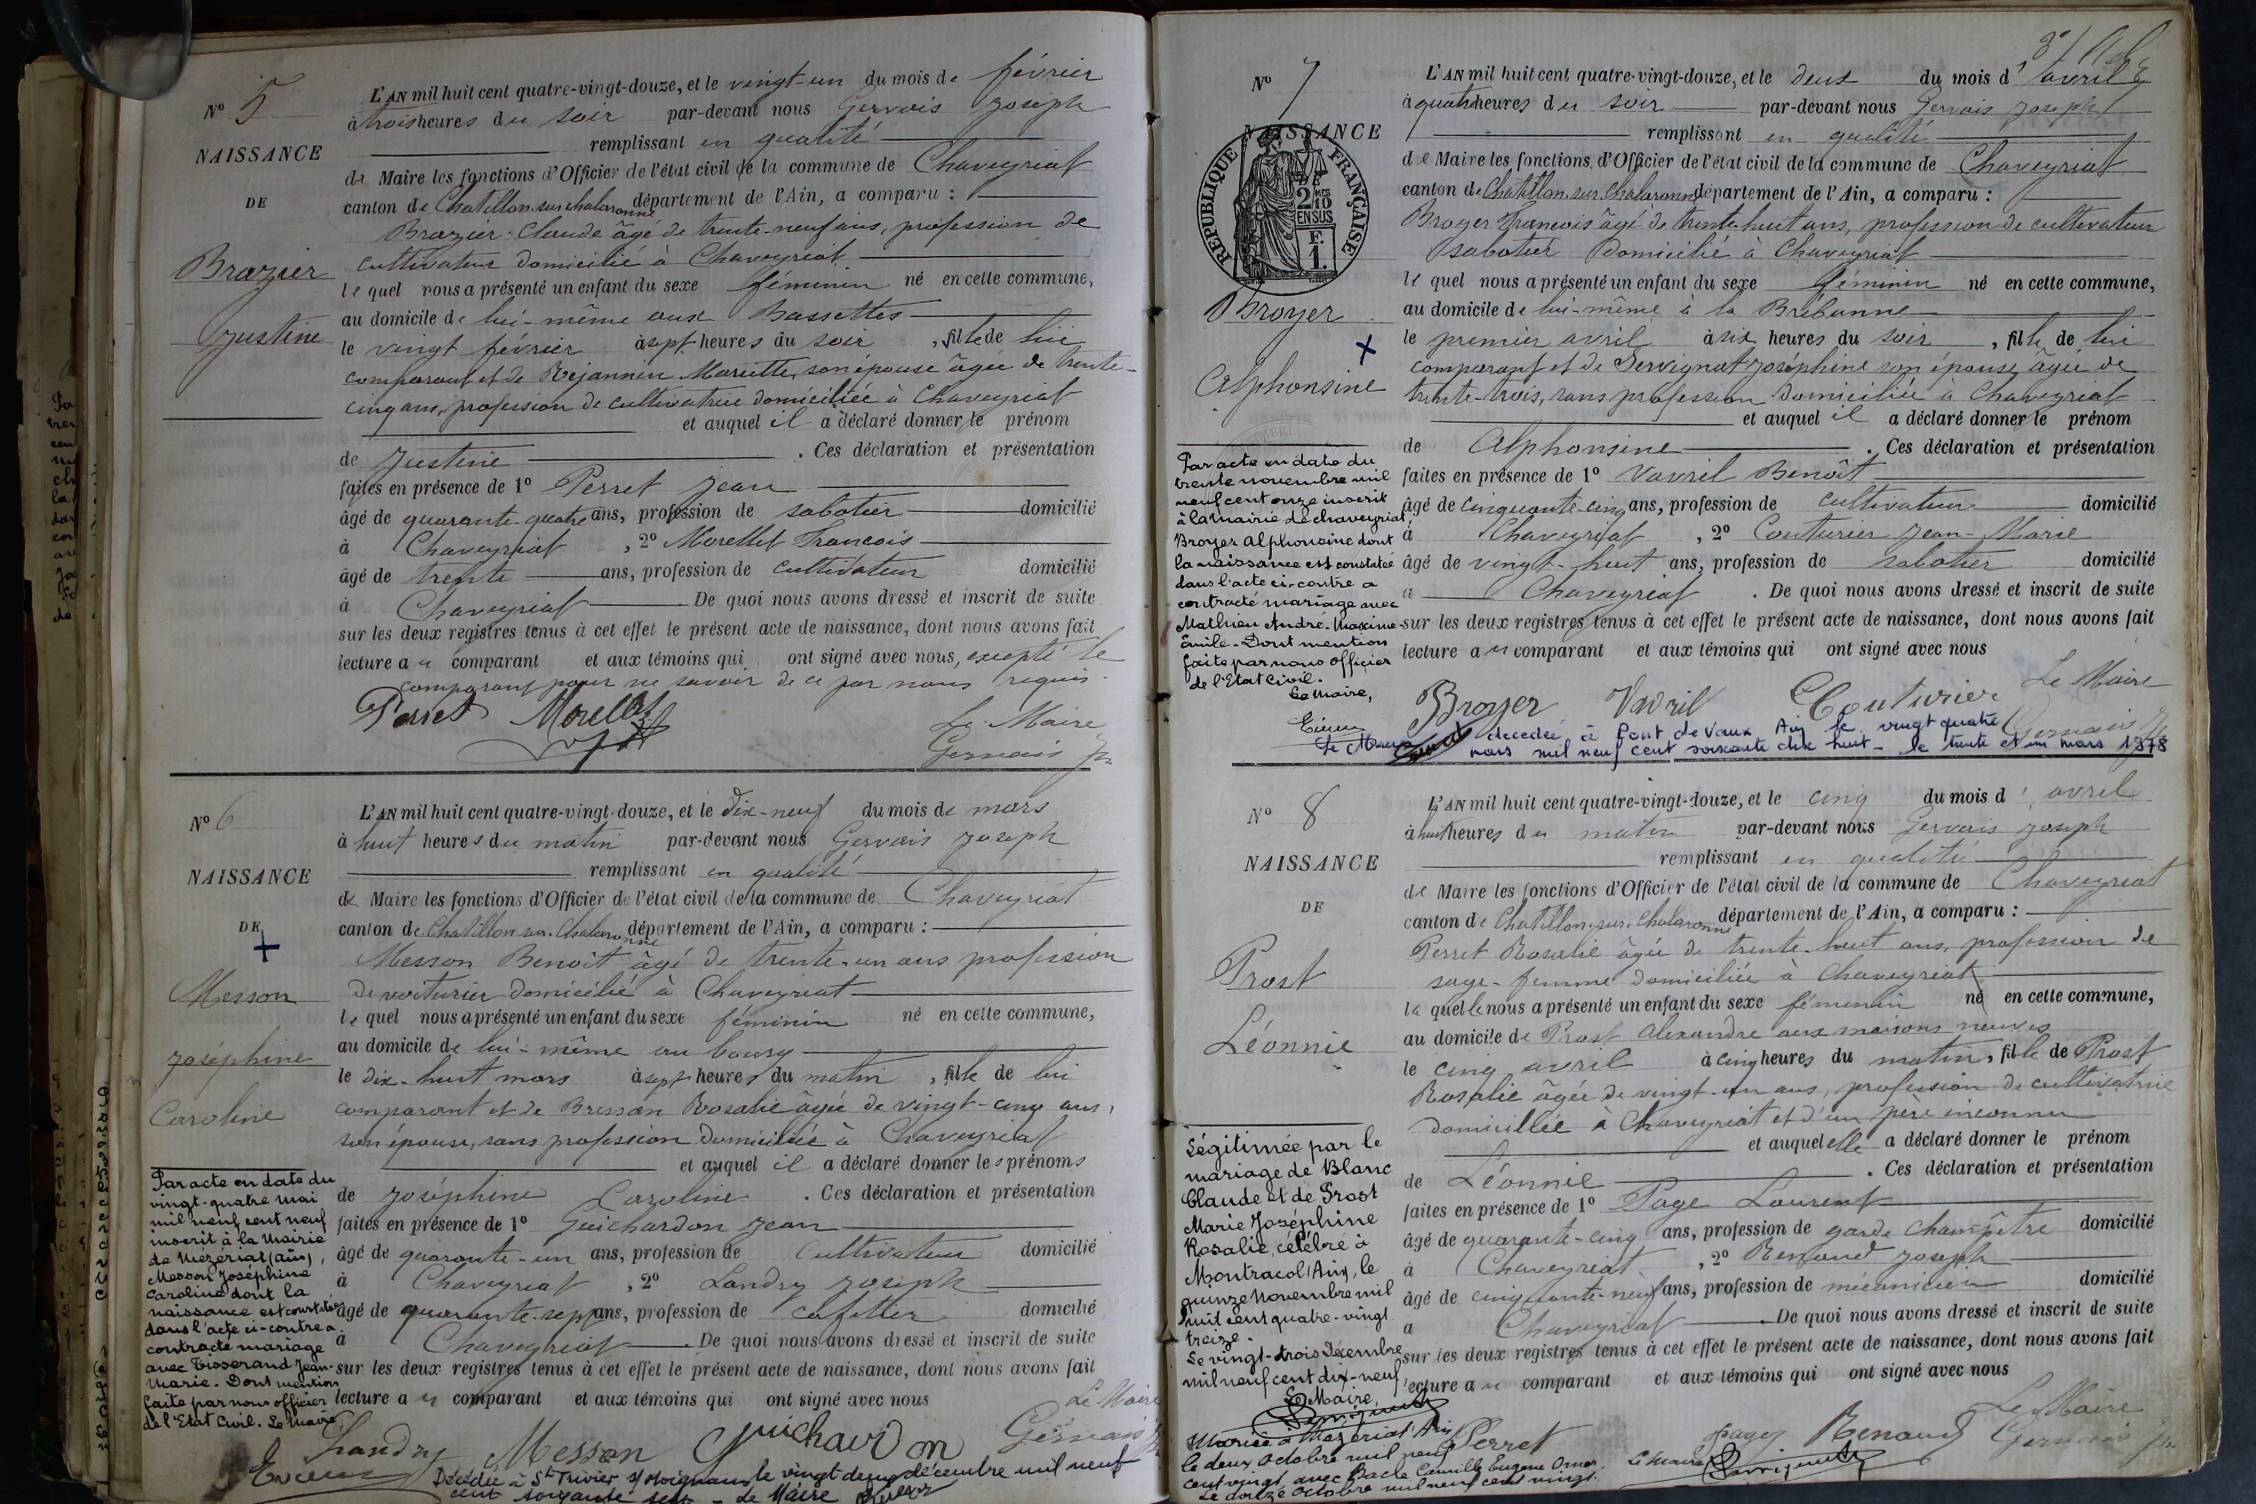 N° 5
NAISSANCE
DE
Brazier
Justine
L'AN mil huit cent quatre-vingt-douze, et le vingt-un du mois de février
à trois heures du soir par-devant nous Gervais Joseph
remplissant en qualité
de Maire les fonctions d'Officier de l'état civil de la commune de Chaveyriat
canton de Chatillon sur chalaronne département de l'Ain, a comparu :
Brazier Claude âgé de trente-neuf ans, profession de
cultivateur domicilié à Chaveyriat
le quel nous a présenté un enfant du sexe féminin né en cette commune,
au domicile de lui-même aux Bassettes
le vingt février à sept heures du soir, fille de lui
comparant et de Rejannin Mariette, son épouse âgée de trente-
cinq ans, profession de cultivatrice domiciliée à Chaveyriat
et auquel il a déclaré donner le prénom
de Justine . Ces déclaration et présentation
faites en présence de 1° Perret Jean
âgé de quarante-quatre ans, profession de sabotier domicilié
à Chaveyriat, 2° Morellet François
âgé de trente ans, profession de cultivateur domicilié
à Chaveyriat De quoi nous avons dressé et inscrit de suite
sur les deux registres tenus à cet effet le présent acte de naissance, dont nous avons fait
lecture au comparant et aux témoins qui ont signé avec nous, excepté le
comparant pour ne savoir de ce par nous requis.
Perret Morellet Le Maire
Gervais Jh
N° 6
NAISSANCE
DE
Messon
Joséphine
Caroline
Par acte en date du
vingt-quatre mai
mil neuf cent neuf
inscrit à la Mairie
de Mézériat (Ain),
Messon Joséphine
Caroline dont la
naissance est constatée
dans l'acte ci-contre a
contracté mariage
avec Tisserand Jean-
Marie. Dont mention
faite par nous officier
de l'Etat Civil. Le Maire
L'AN mil huit cent quatre-vingt-douze, et le dix-neuf du mois de mars
à huit heures du matin par-devant nous Gervais Joseph
remplissant en qualité
de Maire les fonctions d'Officier de l'état civil de la commune de Chaveyriat
canton de Chatillon sur Chalaronne département de l'Ain, a comparu :
Messon Benoît âgé de trente-un ans profession
de voiturier domicilié à Chaveyriat
le quel nous a présenté un enfant du sexe féminin né en cette commune,
au domicile de lui-même au bourg
le dix-huit mars à sept heures du matin, fille de lui
comparant et de Bressan Rosalie âgée de vingt-cinq ans,
son épouse, sans profession domiciliée à Chaveyriat
et auquel il a déclaré donner les prénoms
de Joséphine Caroline . Ces déclaration et présentation
faites en présence de 1° Guichardon Jean
âgé de quarante-un ans, profession de cultivateur domicilié
à Chaveyriat, 2° Landry Joseph
âgé de quarante-sept ans, profession de cafetier domicilié
à Chaveyriat . De quoi nous avons dressé et inscrit de suite
sur les deux registres tenus à cet effet le présent acte de naissance, dont nous avons fait
lecture au comparant et aux témoins qui ont signé avec nous
Le Maire
Landry Messon Guichardon Gervais
Décédée à St Trivier s/ Moignans le vingt deux décembre mil neuf
cent soixante sept - le Maire
N° 7
NAISSANCE
RÉPUBLIQUE FRANÇAISE
2 MES 10
EN SUS
F.
1.
Broyer
Alphonsine
Par acte en date du
trente novembre mil
neuf cent onze inscrit
à la Mairie de Chaveyriat,
Broyer Alphonsine dont
la naissance est constatée
dans l'acte ci-contre a
contracté mariage avec
Mathieu André-Maxime-
Emile. Dont mention
faite par nous officier
de l'Etat Civil.
Le Maire,
L'AN mil huit cent quatre-vingt-douze, et le deux du mois d'avril
à quatre heures du soir par-devant nous Gervais Joseph
remplissant en qualité
de Maire les fonctions d'Officier de l'état civil de la commune de Chaveyriat
canton de Chatillon sur Chalaronne département de l'Ain, a comparu :
Broyer François âgé de trente-huit ans, profession de cultivateur
sabotier domicilié à Chaveyriat
le quel nous a présenté un enfant du sexe féminin né en cette commune,
au domicile de lui-même à la Brebanne
le premier avril à six heures du soir, fille de lui
comparant et de Servignat Joséphine son épouse âgée de
trente-trois, sans profession domiciliée à Chaveyriat
et auquel il a déclaré donner le prénom
de Alphonsine . Ces déclaration et présentation
faites en présence de 1° Vavril Benoît
âgé de cinquante-cinq ans, profession de cultivateur domicilié
à Chaveyriat, 2° Couturier Jean-Marie
âgé de vingt-huit ans, profession de sabotier domicilié
à Chaveyriat . De quoi nous avons dressé et inscrit de suite
sur les deux registres tenus à cet effet le présent acte de naissance, dont nous avons fait
lecture au comparant et aux témoins qui ont signé avec nous
Le Maire
Broyer Vavril Couturier
Gervais Jh
décédée à Pont de Vaux Ain le vingt quatre
mars mil neuf cent soixante dix huit - le trente et un mars 1978
Le Maire
N° 8
NAISSANCE
DE
Prost
Léonnie
Légitimée par le
mariage de Blanc
Claude et de Prost
Marie Joséphine
Rosalie, célébré à
Montracol (Ain), le
quinze novembre mil
huit cent quatre-vingt
treize.
Le vingt-trois Décembre
mil neuf cent dix-neuf
Le Maire
Mariée à Mézériat Ain
le deux Octobre mil neuf
cent vingt avec Bacle Camille Eugène Omer.
Le douze Octobre mil neuf cent vingt.
Le Maire
L'AN mil huit cent quatre-vingt-douze, et le cinq du mois d'avril
à huit heures du matin par-devant nous Gervais Joseph
remplissant en qualité
de Maire les fonctions d'Officier de l'état civil de la commune de Chaveyriat
canton de Chatillon sur Chalaronne département de l'Ain, a comparu :
Perret Rosalie âgée de trente-huit ans, profession de
sage-femme domiciliée à Chaveyriat
la quelle nous a présenté un enfant du sexe féminin né en cette commune,
au domicile de Prost Alexandre aux maisons neuves
le cinq avril à cinq heures du matin, fille de Prost
Rosalie âgée de vingt-un ans, profession de cultivatrice
domiciliée à Chaveyriat et d'un père inconnu
et auquel elle a déclaré donner le prénom
de Léonnie . Ces déclaration et présentation
faites en présence de 1° Page Laurent
âgé de quarante-cinq ans, profession de garde champêtre domicilié
à Chaveyriat, 2° Renaud Joseph
âgé de cinquante-neuf ans, profession de mécanicien domicilié
à Chaveyriat De quoi nous avons dressé et inscrit de suite
sur les deux registres tenus à cet effet le présent acte de naissance, dont nous avons fait
lecture au comparant et aux témoins qui ont signé avec nous
Le Maire
Perret Page Renaud Gervais Jh